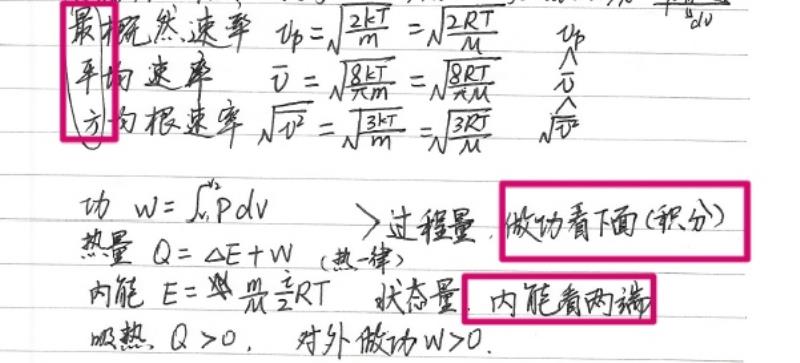 最概然速率 υp = √(2kT/m) = √(2RT/M) υp
∧
平均速率 ῡ = √(8kT/πm) = √(8RT/πM) ῡ
∧
方均根速率 √(ῡ²) = √(3kT/m) = √(3RT/M) √(ῡ²)
功 W = ∫_{V₁}^{V₂} P dv > 过程量. 做功看下面(积分)
热量 Q = ΔE + W (热一律)
内能 E = m/M i/2 RT 状态量. 内能看两端
吸热. Q > 0. 对外做功 W > 0.